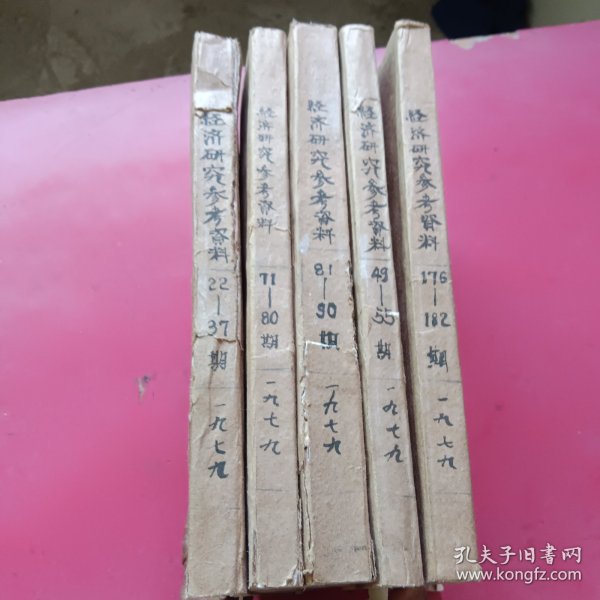 经济研究参考资料
22—37
期
一九七九
经济研究参考资料
71—80
期
一九七九
经济研究参考资料
81—90
期
一九七九
经济研究参考资料
49—55
期
一九七九
经济研究参考资料
176—182
期
一九七九
孔夫子旧书网
www.kongfz.com